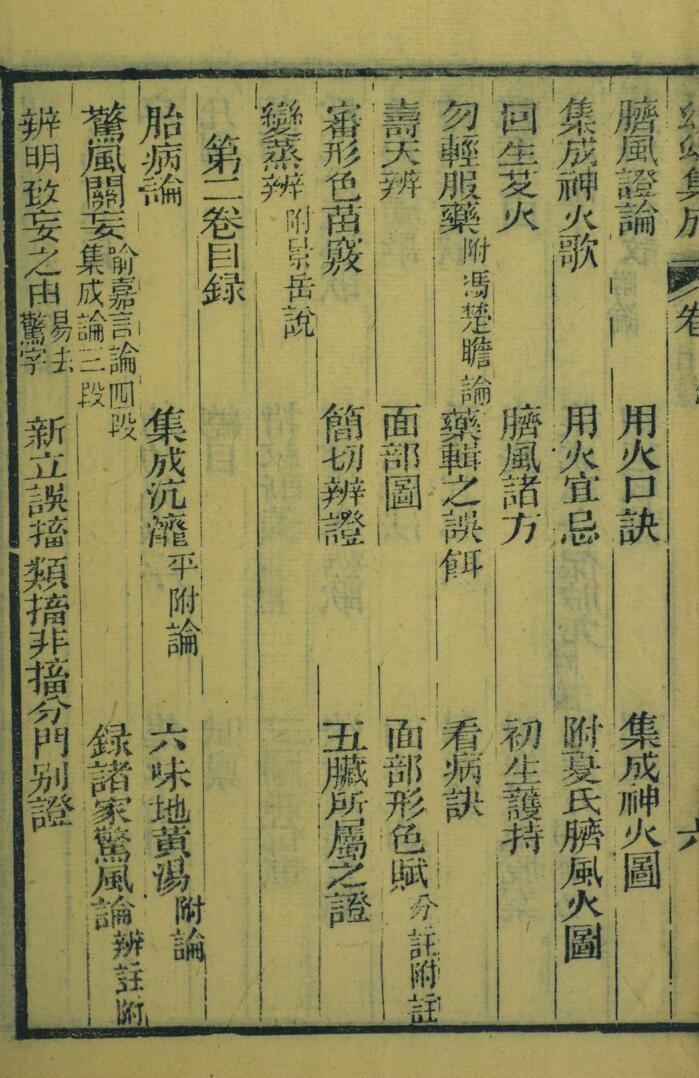 幼幼集成 卷 六
臍風證論 用火口訣 集成神火圖
集成神火歌 用火宜忌 附夏氏臍風火圖
回生艾火 臍風諸方 初生護持
勿輕服藥 附馮楚瞻論 藥輯之誤餌 看病訣
壽夭辨 面部圖 面部形色賦 分註附註
審形色苗竅 簡切辨證 五臟所屬之證
變蒸辨 附景岳說
第二卷目録
胎病論 集成沆瀣 平附論 六味地黄湯 附論
驚風闢妄 喻嘉言論四段 集成論三段 録諸家驚風論 辨註附
辨明致妄之由 易去驚字 新立誤搐類搐非搐分門别證